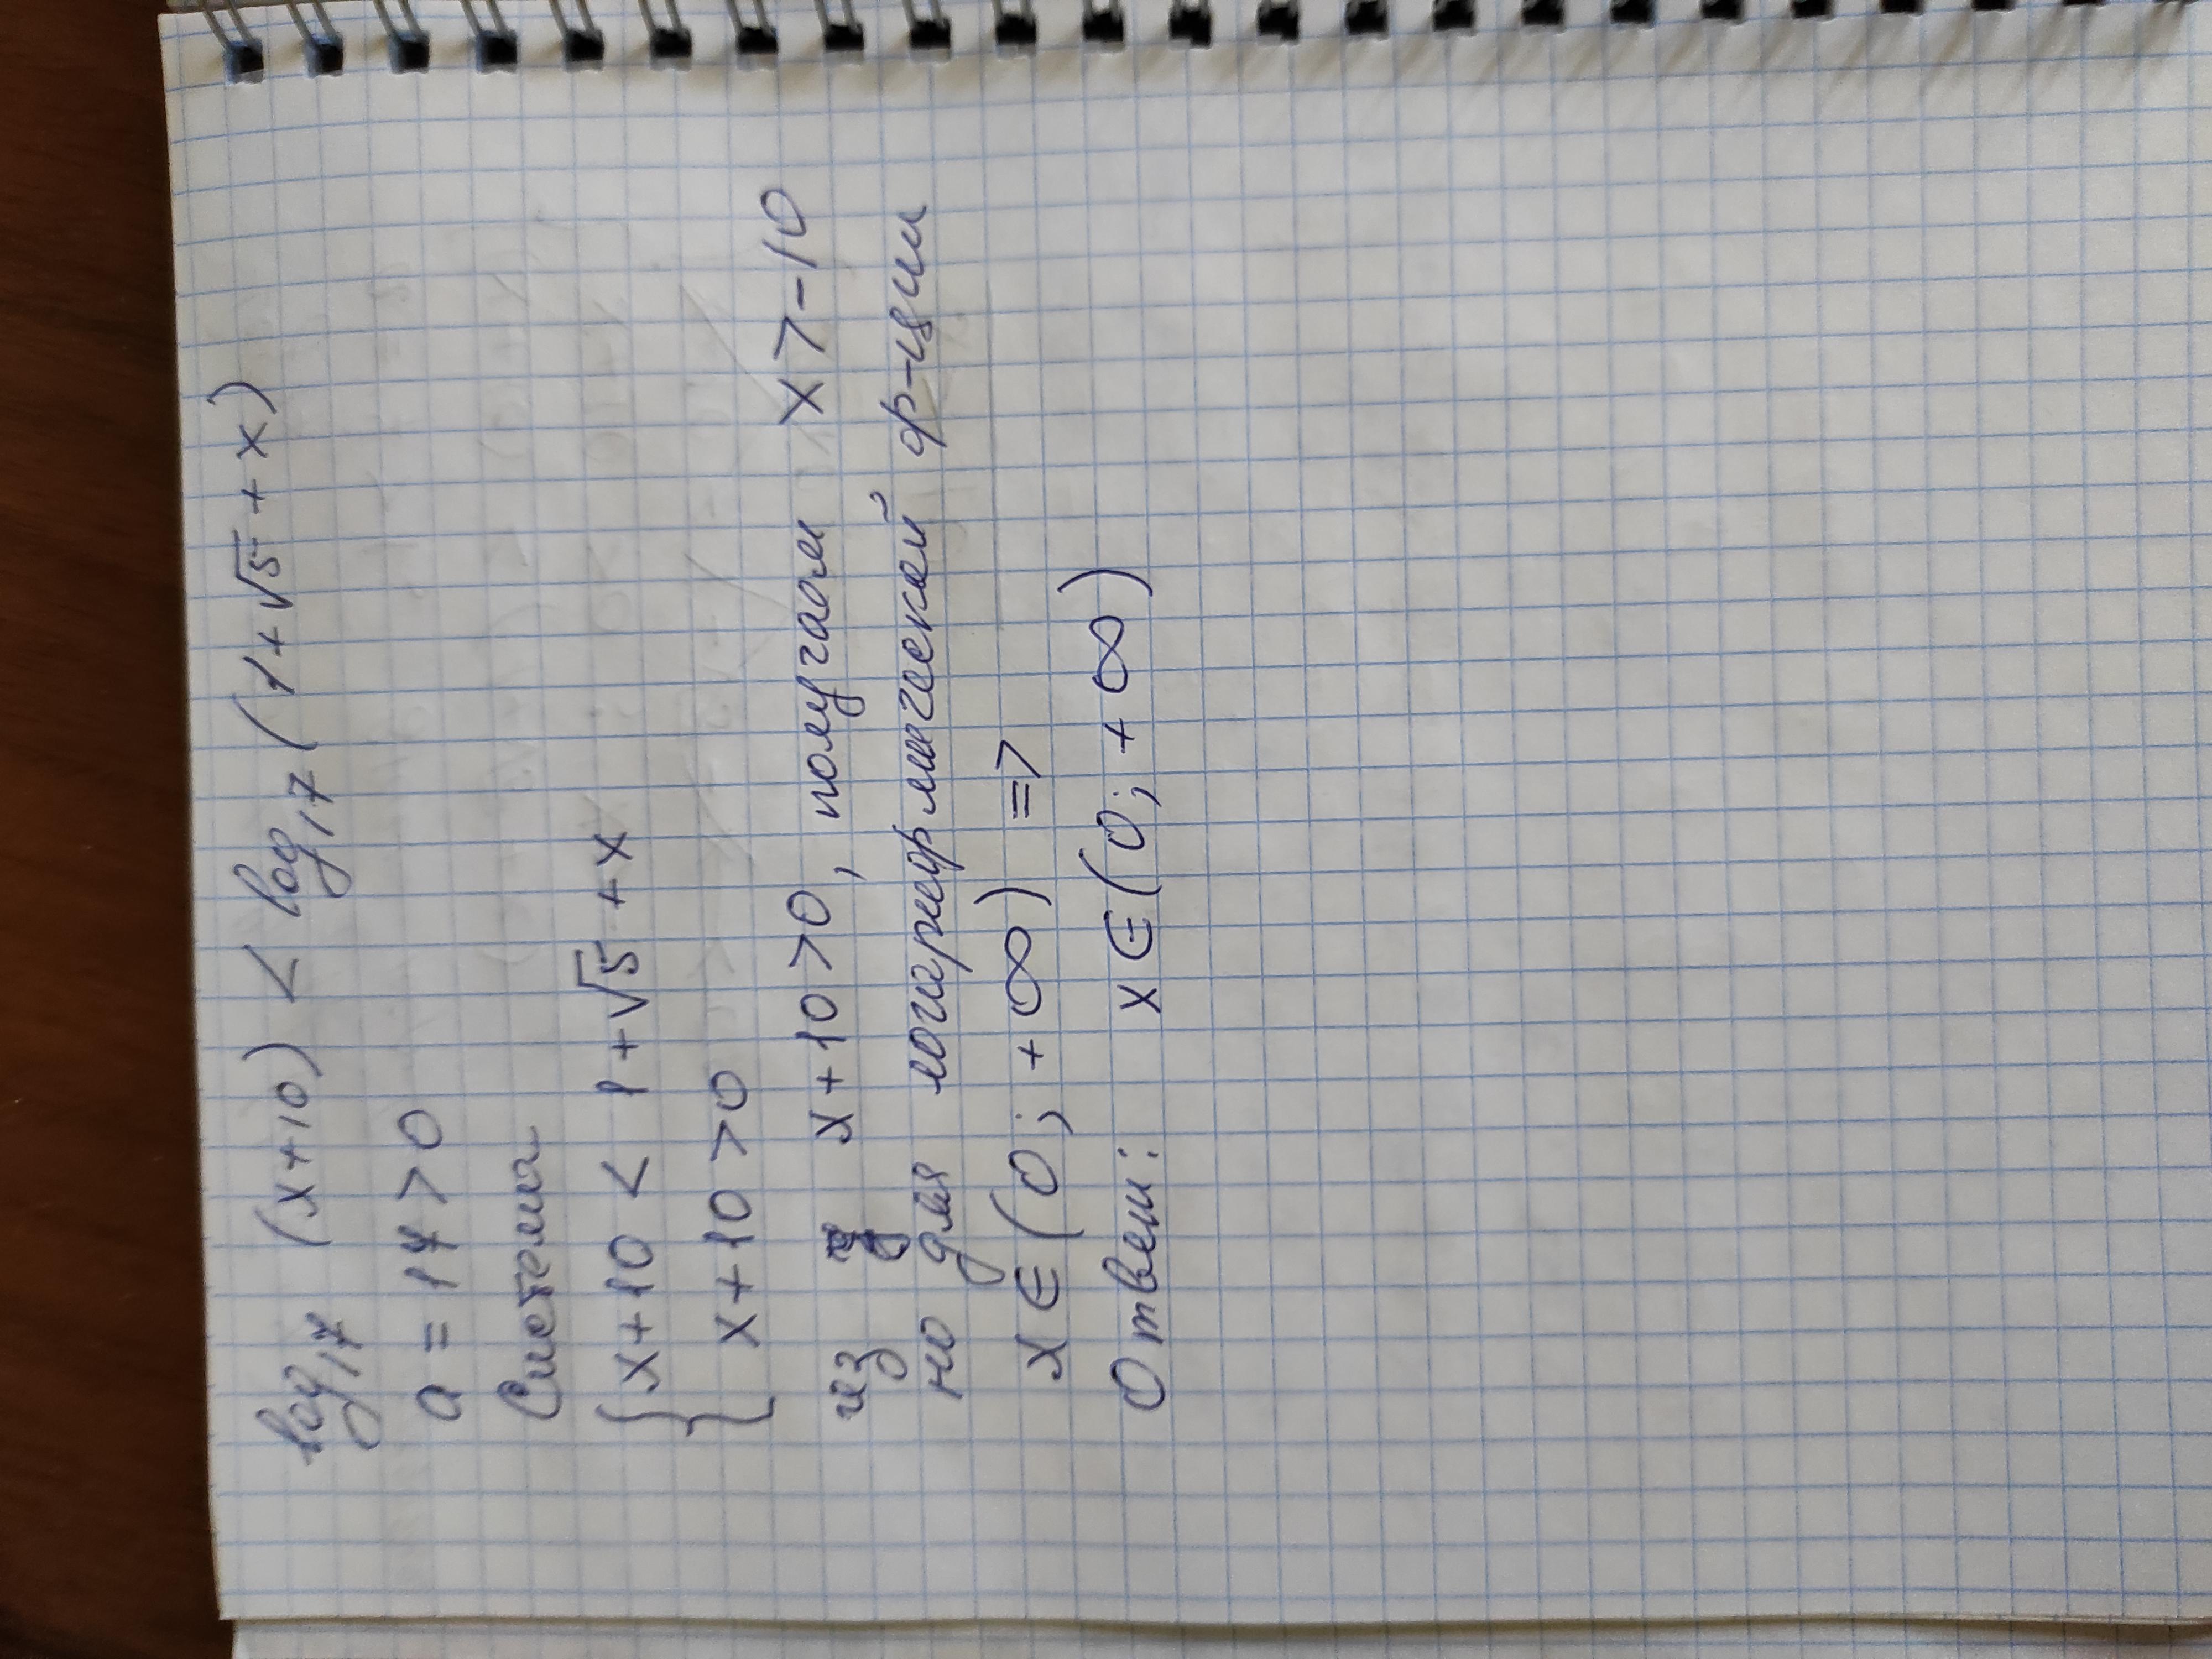 log₁₇ (x+10) < log₁₇ (1+√5+x)
a = 17 > 0
Система
{ x+10 < 1+√5+x
{ x+10 >0
из x+10>0, получаем x>-10
но для логирформической ф-ции
x∈(0; +∞) =>
Ответ: x∈(0; +∞)